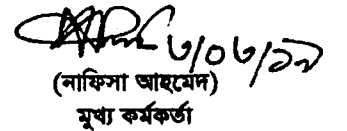 ৩/০৩/১৯
(নাফিসা আহমেদ)
মুখ্য কর্মকর্তা